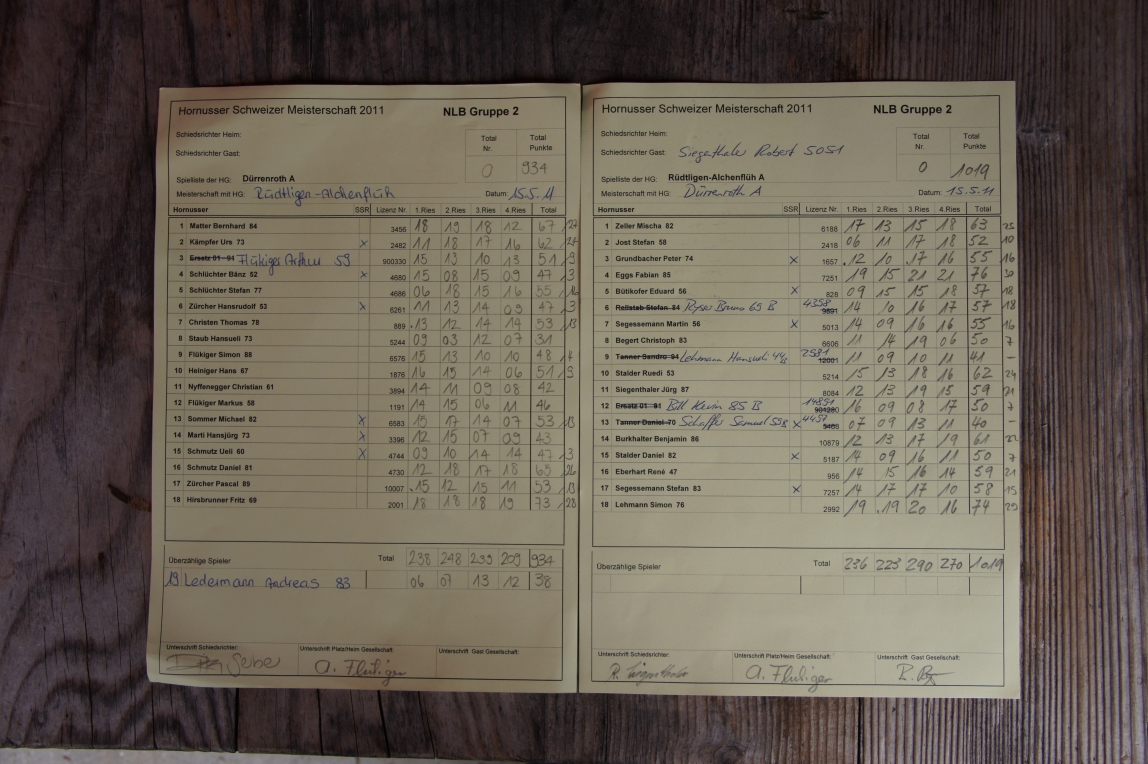 Hornusser Schweizer Meisterschaft 2011 NLB Gruppe 2
Schiedsrichter Heim:
Schiedsrichter Gast:
Total Nr. Total Punkte
0 934
Spielliste der HG: Dürrenroth A
Meisterschaft mit HG: Rüdtligen-Alchenflüh Datum: 15.5.11
Hornusser SSR Lizenz Nr. 1.Ries 2.Ries 3.Ries 4.Ries Total
1 Matter Bernhard 84 3456 18 19 18 12 67
2 Kämpfer Urs 73 x 2482 11 18 17 16 62
3 Ersatz 01 91 Flükiger Arthur 59 900330 15 13 10 13 51
4 Schlüchter Bänz 52 x 4680 15 08 15 09 47
5 Schlüchter Stefan 77 4686 06 18 15 16 55
6 Zürcher Hansrudolf 53 x 6261 11 13 14 09 47
7 Christen Thomas 78 889 13 12 14 14 53
8 Staub Hansueli 73 5244 09 03 12 07 31
9 Flükiger Simon 88 6576 15 13 10 10 48
10 Heiniger Hans 67 1876 16 15 14 06 51
11 Nyffenegger Christian 61 3894 14 11 09 08 42
12 Flükiger Markus 58 1191 14 15 06 11 46
13 Sommer Michael 82 x 6583 15 17 14 07 53
14 Marti Hansjürg 73 x 3396 12 15 07 09 43
15 Schmutz Ueli 60 x 4744 09 10 14 14 47
16 Schmutz Daniel 81 4730 12 18 17 18 65
17 Zürcher Pascal 89 10007 15 12 15 11 53
18 Hirsbrunner Fritz 69 2001 18 18 18 19 73
Überzählige Spieler Total 238 248 239 209 934
19 Ledermann Andreas 83 06 07 13 12 38
Unterschrift Schiedsrichter: Unterschrift Platz/Heim Gesellschaft: Unterschrift Gast Gesellschaft:
A. Flükiger
Hornusser Schweizer Meisterschaft 2011 NLB Gruppe 2
Schiedsrichter Heim:
Schiedsrichter Gast: Siegenthaler Robert 5051
Total Nr. Total Punkte
0 1019
Spielliste der HG: Rüdtligen-Alchenflüh A
Meisterschaft mit HG: Dürrenroth A Datum: 15.5.11
Hornusser SSR Lizenz Nr. 1.Ries 2.Ries 3.Ries 4.Ries Total
1 Zeller Mischa 82 6188 17 13 15 18 63 25
2 Jost Stefan 58 2418 06 11 17 18 52 10
3 Grundbacher Peter 74 x 1657 12 10 17 16 55 16
4 Eggs Fabian 85 7251 19 15 21 21 76 30
5 Bütikofer Eduard 56 x 828 09 15 15 18 57 18
6 Rellstab Stefan 84 Ryser Bruno 65 B 4358 9891 14 10 16 17 57 18
7 Segessemann Martin 56 x 5013 14 09 16 16 55 16
8 Begert Christoph 83 6606 11 14 19 06 50 7
9 Tanner Sandro 94 Lehmann Hansueli 44 B 2581 12001 11 09 10 11 41 -
10 Stalder Ruedi 53 5214 15 13 18 16 62 24
11 Siegenthaler Jürg 87 8084 12 13 19 15 59 21
12 Ersatz 01 91 Bill Kevin 85 B 14851 901280 16 09 08 17 50 7
13 Tanner Daniel 70 Schaffer Samuel 59 B x 4457 5458 07 09 13 11 40 -
14 Burkhalter Benjamin 86 10879 12 13 17 19 61 22
15 Stalder Daniel 82 x 5187 14 09 16 11 50 7
16 Eberhart René 47 956 14 15 16 14 59 21
17 Segessemann Stefan 83 x 7257 14 17 17 10 58 15
18 Lehmann Simon 76 2992 19 19 20 16 74 29
Überzählige Spieler Total 236 223 290 270 1019
Unterschrift Schiedsrichter: Unterschrift Platz/Heim Gesellschaft: Unterschrift Gast Gesellschaft:
R. Siegenthaler A. Flükiger